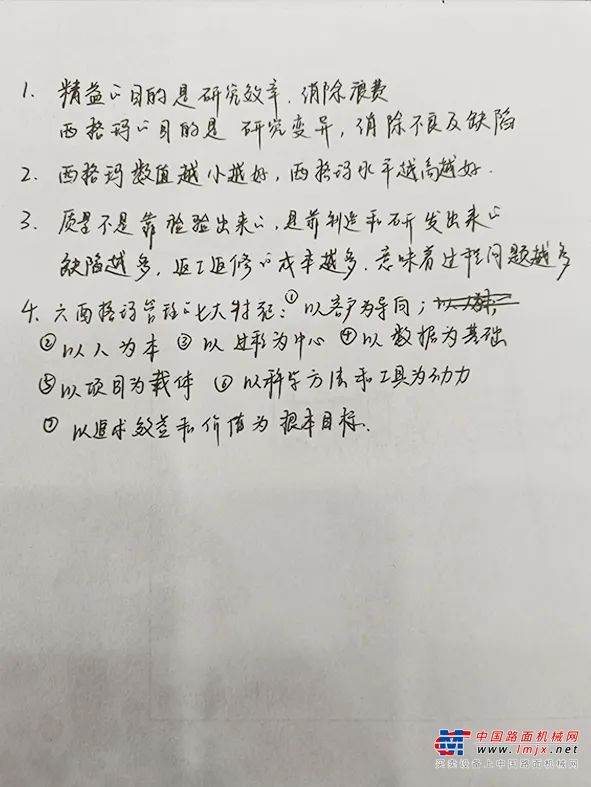 1. 精益的目的是研究效率,消除浪费
西格玛的目的是 研究变异,消除不良及缺陷
2. 西格玛数值越小越好,西格玛水平越高越好.
3. 质量不是靠检验出来的,是靠制造和研发出来的
缺陷越多,返工返修的成本越多,意味着过程问题越多
4. 六西格玛管理的七大特征:①以客户为导向;
②以人为本 ③以过程为中心 ④以数据为基础
⑤以项目为载体 ⑥以科学方法和工具为动力
⑦以追求效益和价值为根本目标.
中国路面机械网
www.lmjx.net
买卖设备上中国路面机械网